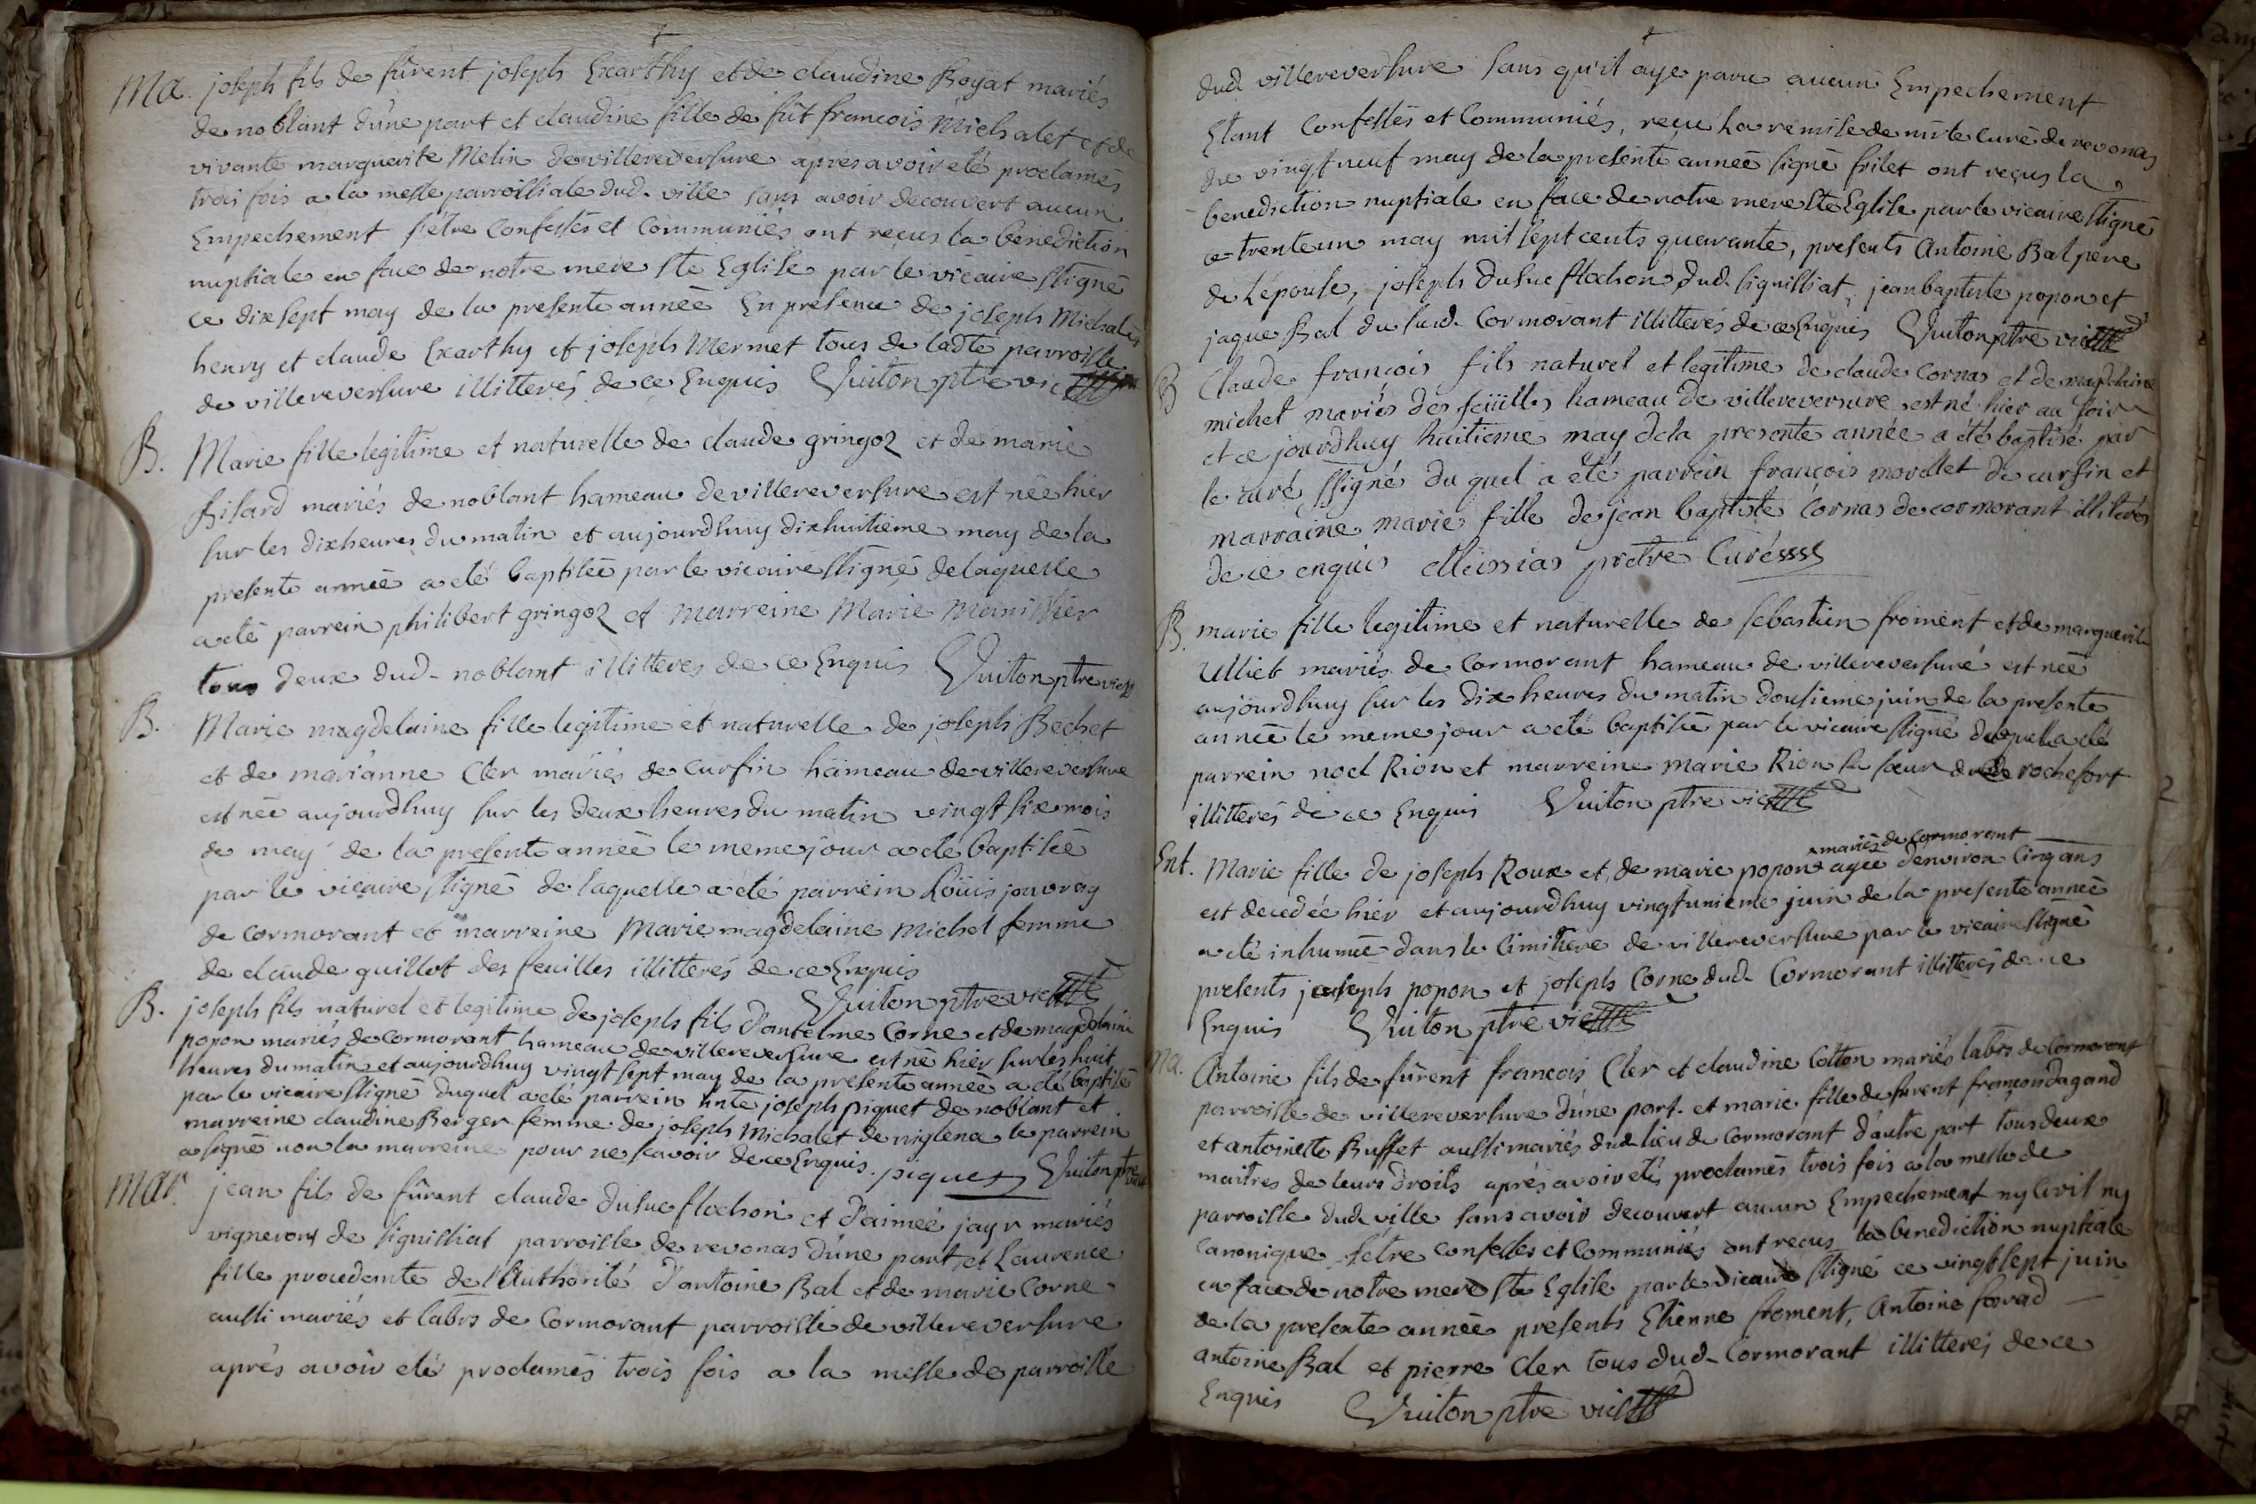 Ma. joseph fils de fûrent joseph Exarthy et de claudine Royat mariés
de noblant d'une part et claudine fille de fût francois Michalet et de
vivante marguerite Melin de villereversure apres avoir eté proclamés
trois fois a la messe parroissiale dud. ville sans avoir decouvert aucun
Empechement s'etre Confessés et Communiés ont reçus la benediction
nuptiale en face de notre mere Ste Eglise par le vicaire ssigné
ce dixsept may de la presente année En presence de joseph Michalet
henry et claude Exarthy et joseph Mermet tous de ladte parroisse
de villereversure illitterés de ce Enquis Vuiton ptre vic
B. Marie fille legitime et naturelle de claude gringoz et de marie
Bilard mariés de noblant hameau de villereversure est née hier
sur les dixheures du matin et aujourdhuy dixhuitieme may de la
presente année a eté baptisée par le vicaire ssigné de laquelle
a eté parrein philibert gringoz et marreine Marie Manissier
tous deux dud. noblant illitteres de ce Enquis Vuiton ptre vic
B. Marie magdelaine fille legitime et naturelle de joseph Bechet
et de marianne Cler mariés de Cursin hameau de villereversure
est née aujourdhuy sur les deux heures du matin vingt six mois
de may de la presente année le meme jour a eté baptisée
par le vicaire ssigné de laquelle a eté parrein Loüis jouvray
de Cormorant et marreine Marie magdelaine Michel femme
de claude guillot des feuilles illitterés de ce Enquis
Vuiton ptre vic
B. joseph fils naturel et legitime de joseph fils d'antelme Corne et de magdelaine
popon mariés de Cormorant hameau de villereversure est né hier sur les huit
heures du matin et aujourdhuy vingt sept may de la presente année a eté baptisé
par le vicaire ssigné duquel a eté parrein joseph piquet de noblant et
marreine claudine Berger femme de joseph Michalet de le parrein
a signé non la marreine pour ne scavoir de ce Enquis. piquet Vuiton ptre
Mar. jean fils de fûrent claude dusuc flochon et d'aimeé jayr mariés
vignerons de signissiat parroisse de revonas d'une part et Laurence
fille procedente de l'Authorité d'antoine Bal et de marie Corne
aussi mariés et labrs de Cormorant parroisse de villereversure
aprés avoir eté proclamés trois fois a la messe de parroisse
dud villereversure sans qu'il aye paru aucun Empechement
Etant Confessés et Communiés, reçu La remise de mr le curé de revonas
du vingtneuf may de la presente année signé frilet ont reçus la
benediction nuptiale en face de notre mere Ste Eglise par le vicaire ssigné
ce trente un may mil sept cents quarante, presents Antoine Bal pere
de L'épouse, joseph dusuc flochon dud. signissiat, jean baptiste popon et
jaque Bal du susd. Cormorant illitterés de ce Enquis Vuiton ptre vic
B Claude françois fils naturel et legitime de claude Cornas et de magdelaine
michel mariés des feüilles hameau de villereversure est né hier au soir
et ce jourdhuy huitieme may de la presente année a été baptisé par
le curé ssigné du quel a été parrein françois morellet de cursin et
marraine marie fille de jean baptiste Cornas de cormorant illiterés
de ce enquis Meissias pretre Curé
B. marie fille legitime et naturelle de sebastien froment et de marguerite
Ulliet mariés de Cormorant hameau de villereversure est née
aujourdhuy sur les dix heures du matin dousieme juin de la presente
année le meme jour a eté baptisée par le vicaire ssigné a eté
parrein noel Rion et marreine marie Rion sa soeur de rochefort
illitterés de ce Enquis Vuiton ptre vic
mariés de Cormorant
Ent. Marie fille de joseph Roux et de marie popon agée d'environ Cinq ans
est decedée hier et aujourdhuy vingtunieme juin de la presente année
a eté inhumée dans le Cimitiere de villereversure par le vicaire ssigné
presents joseph popon et joseph Corne dud. Cormorant illitterés de ce
Enquis Vuiton ptre vic
Ma. Antoine fils de fûrent francois Cler et claudine Cotton mariés labrs de Cormorant
parroisse de villereversure d'une part. et marie fille de furent françois dagand
et antoinette Buffet aussi mariés dud. lieu de Cormorant d'autre part tous deux
maitres de leurs droits aprés avoir eté proclamés trois fois a la messe de
parroisse dud. ville sans avoir decouvert aucun Empechement ny Civil ny
Canonique s'etre confessés et Communiés ont reçus la benediction nuptiale
en face de notre mere Ste Eglise par le vicaire ssigné ce vingtsept juin
de la presente année presents Etienne froment, Antoine
antoine Bal et pierre Cler tous dud. Cormorant illitterés de ce
Enquis Vuiton ptre vic